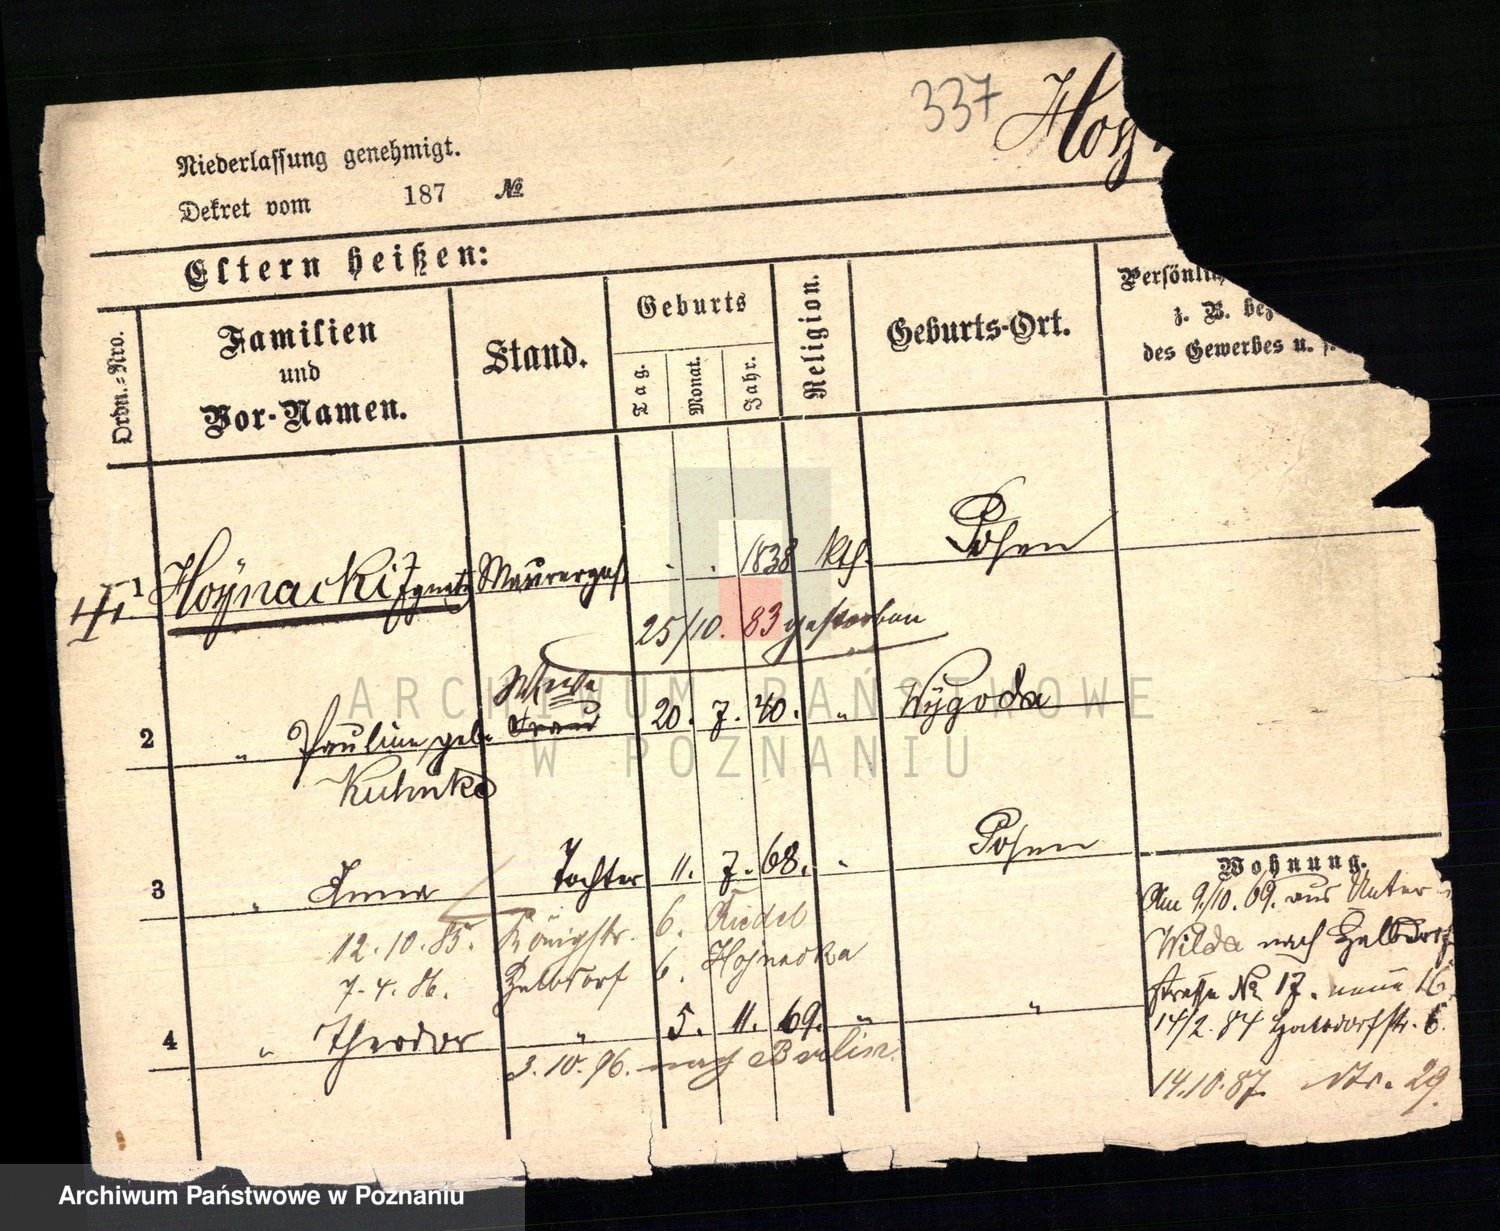 337 Hoy
Niederlassung genehmigt.
Dekret vom 187 №
Eltern heißen:
Ordn.-Nro.
Familien und Vor-Namen.
Stand.
Geburts
Tag. Monat. Jahr.
Religion.
Geburts-Ort.
Persönlic
z. B. bez
des Gewerbes u. s.
1 Hoÿnacki Ignatz Maurerges. 1838 kth. Posen
25/10. 83 gestorben
Wwe
2 " Pauline, geb. Frau 20. 7. 40. " Wÿgoda
Kuhnke
3 " Anna Tochter 11. 7. 68. " Posen
12.10.85. Königstr. 6. Riedel
7.4.86. Halbdorf 6. Hojnacka
4 " Theodor " 5. 11. 69. " "
3.10.96. nach Berlin.
Wohnung.
Am 9./10. 09. aus Unter-
Wilda nach Halbdorf
straße № 17. neue 16
14/2. 84 Halbdorfstr. 6.
14.10.87. Nr. 29.
ARCHIWUM PAŃSTWOWE
W POZNANIU
Archiwum Państwowe w Poznaniu